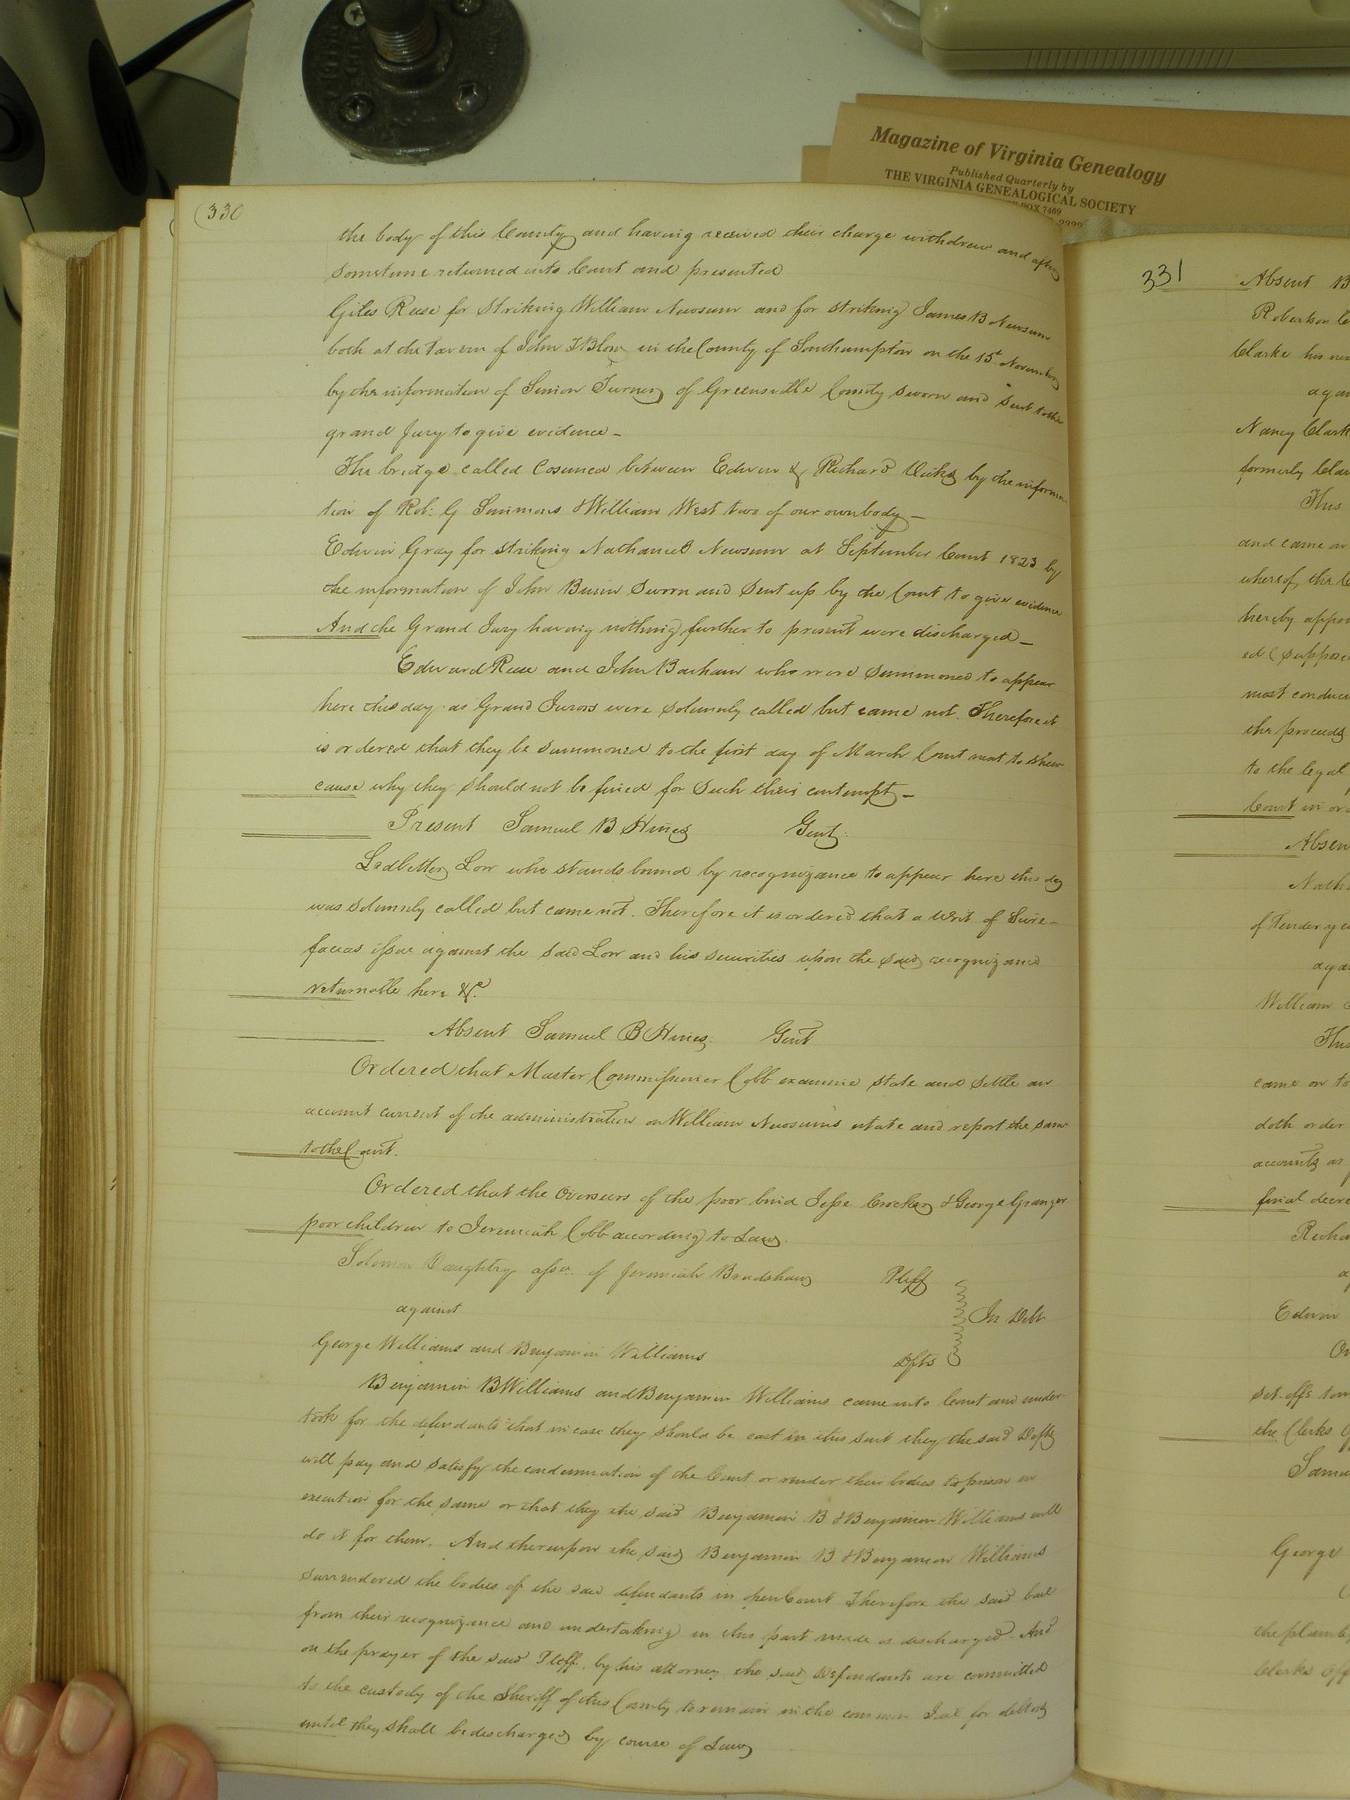 Magazine of Virginia Genealogy
Published Quarterly by
THE VIRGINIA GENEALOGICAL SOCIETY
BOX 7469
330
the body of this County and having received their charge withdrew and after
sometime returned into Court and presented
Giles Reese for Striking William Newsum and for striking James B Newsum
both at the Tavern of John T Blow in the County of Southampton on the 15t November
by the information of Simon Turner of Greensville County sworn and Sent to the
grand Jury to give evidence -
The bridge called Cosunca between Edwin & Richard Vicks by the informa-
tion of Rob: G Simmons & William West two of our own body -
Edwin Gray for striking Nathaniel Newsum at September Court 1823 by
the information of John Busin Sworn and Sent up by the Court to give evidence
And the Grand Jury having nothing further to present were discharged -
Edward Reese and John Barham who were Summoned to appear
here this day as Grand Jurors were Solemnly called but came not. Therefore it
is ordered that they be Summoned to the first day of March Court next to shew
cause why they should not be fined for Such their contempt -
Present Samuel B Hines Gent.
Ledbetter Low who stands bound by recognizance to appear here this day
was solemnly called but came not. Therefore it is ordered that a Writ of Scire-
facias issue against the said Low and his securities upon the said recognizance
returnable here &c.
Absent Samuel B Hines Gent
Ordered that Master Commissioner Cobb examine state and settle an
account current of the administration on William Newsum's estate and report the same
to the Court.
Ordered that the Overseers of the poor bind Jesse Crocker & George Granger
poor children to Jeremiah Cobb according to Law.
Solomon Daughtry asse. of Jeremiah Bradshaw Pltff
against In Debt
George Williams and Benjamin Williams Dfts
Benjamin B Williams and Benjamin Williams came into Court and under-
took for the defendants that in case they should be cast in this suit they the said Defts
will pay and satisfy the condemnation of the Court or render their bodies to prison in
execution for the same or that they the said Benjamin B & Benjamin Williams will
do it for them. And thereupon the said Benjamin B & Benjamin Williams
surrendered the bodies of the said defendants in open Court Therefore the said bail
from their recognizance and undertaking in this part made is discharged. And
on the prayer of the said Pltff. by his attorney the said Defendants are committed
to the custody of the Sheriff of this County to remain in the common Jail for debtors
until they shall be discharged by course of Law
331
Absent B
Robertson
Clarke his
aga
Nancy Clark
formerly Cla
This
and came on
whereof, the C
hereby appoi
ed (suppose
most conduc
the proceeds
to the legal
Court in or
Absen
Nath
of Tender ye
aga
William
This
came on to
doth order
accounts as
final decre
Richa
a
Edwin
Or
set-offs
the Clerks
Samu
George
the plaint
Clerks Off